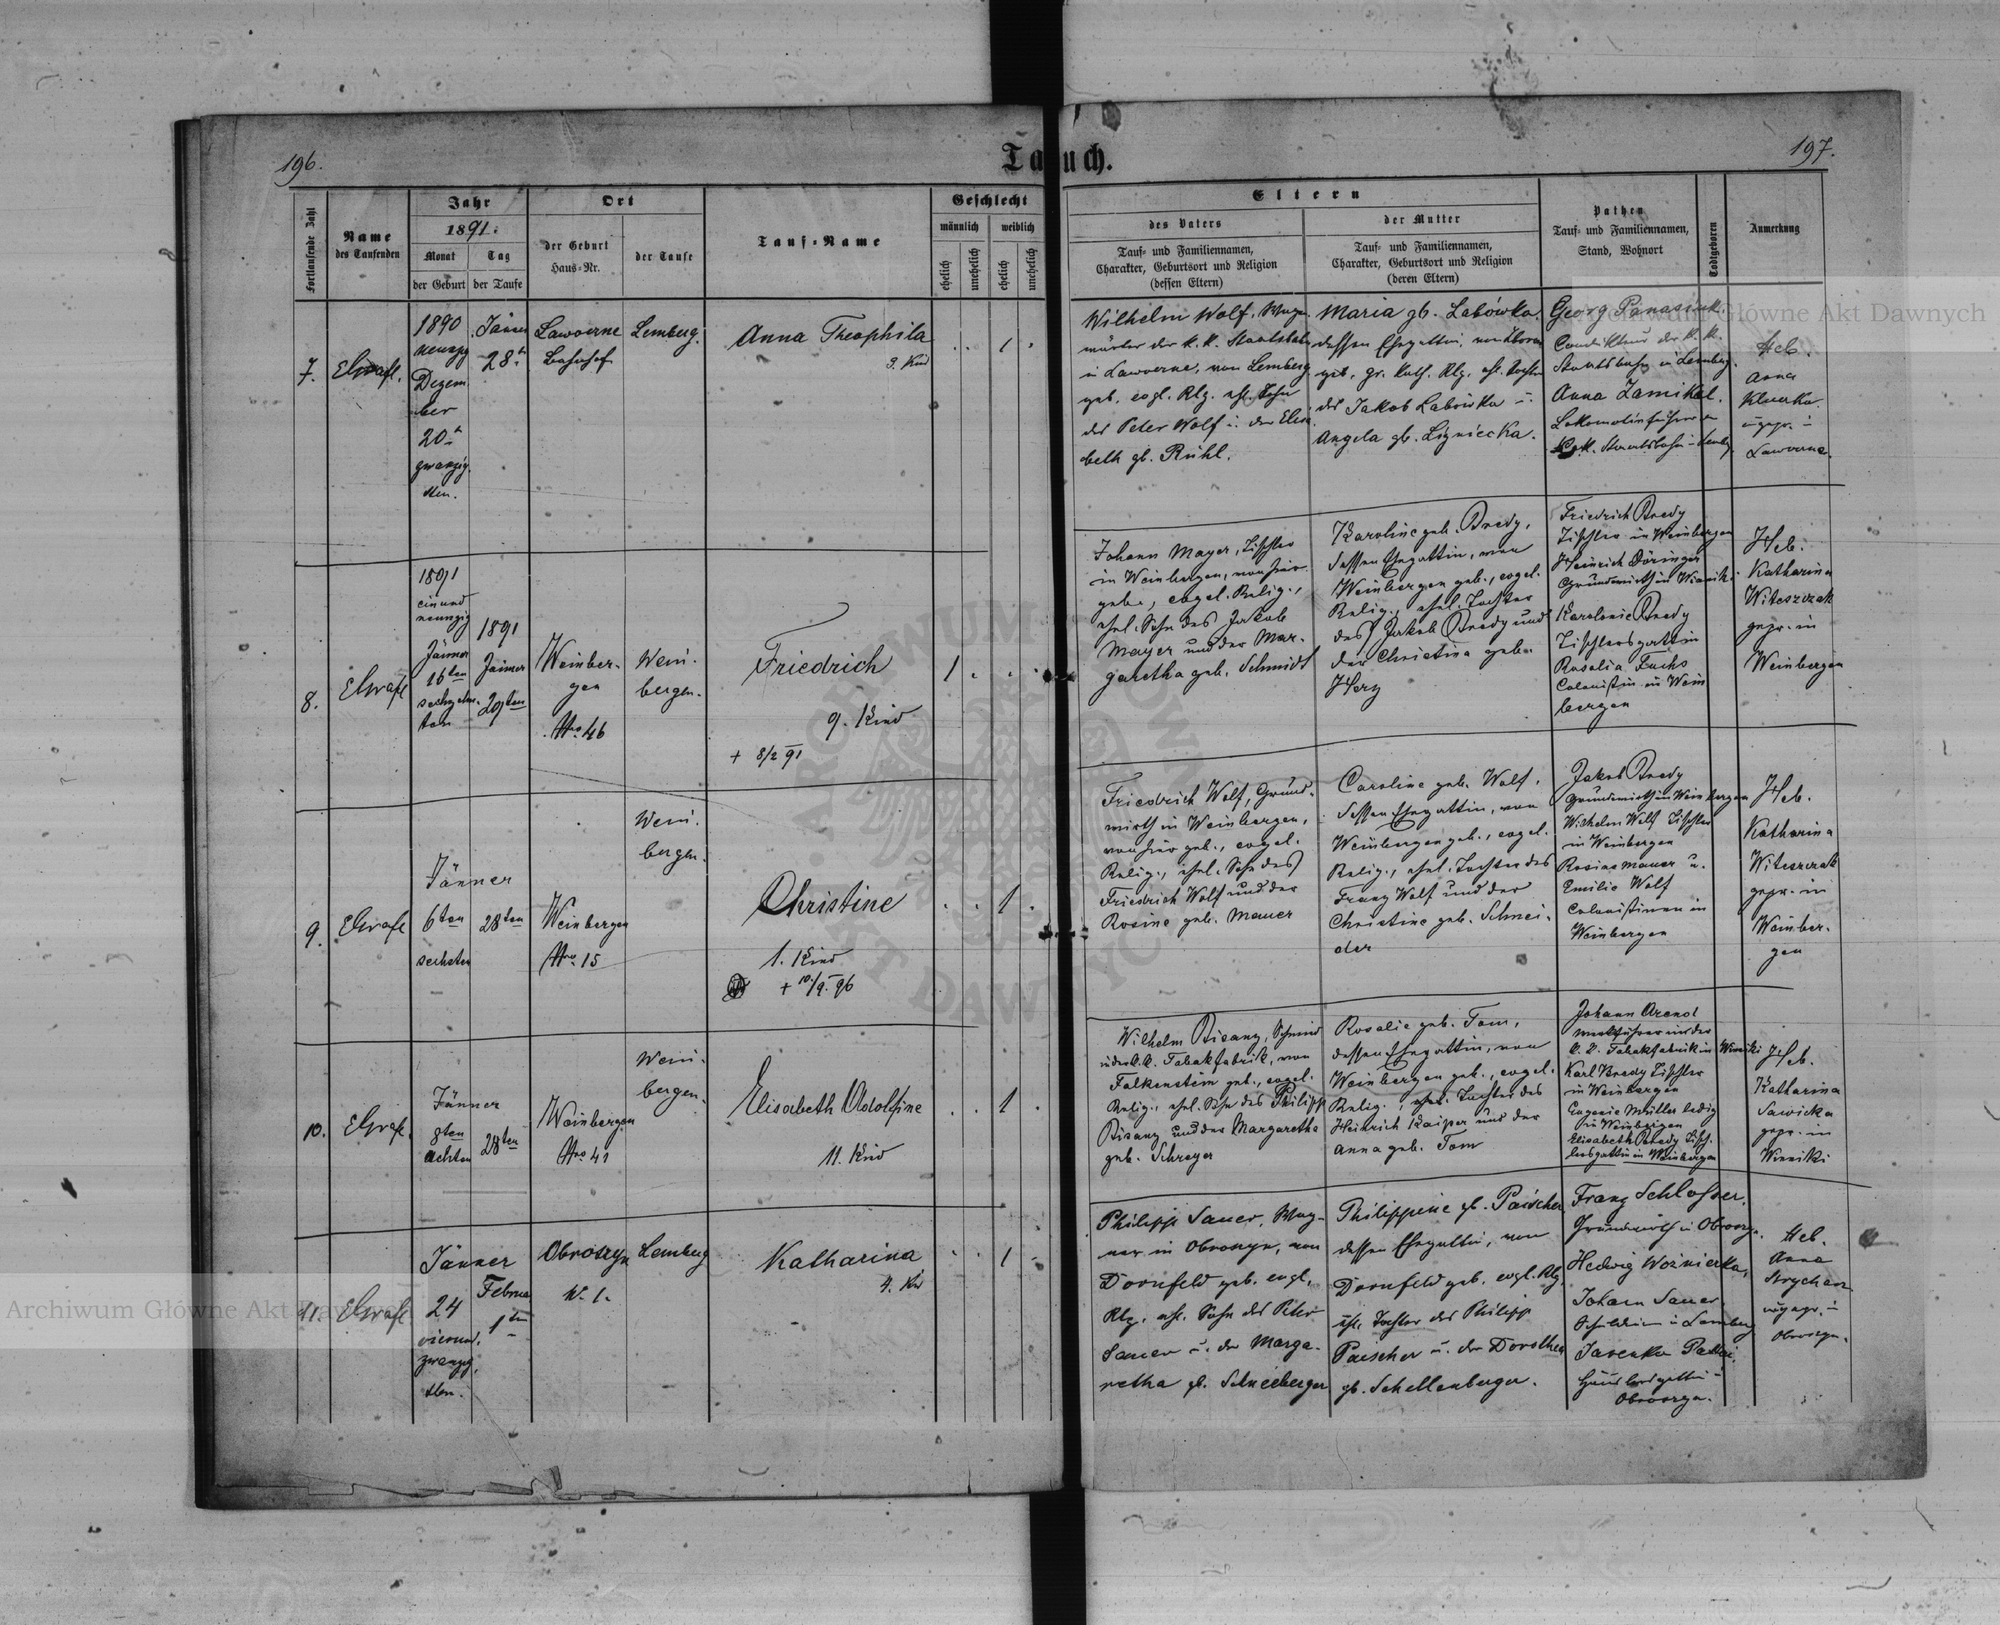 196.
Taufbuch.
197.
Fortlaufende Zahl
Name
des Taufenden
Jahr
1891.
Monat
der Geburt
Tag
der Taufe
Ort
der Geburt
Haus-Nr.
der Taufe
Tauf-Name
Geschlecht
männlich
weiblich
ehelich
unehelich
ehelich
unehelich
Eltern
des Vaters
Tauf- und Familiennamen,
Charakter, Geburtsort und Religion
(dessen Eltern)
der Mutter
Tauf- und Familiennamen,
Charakter, Geburtsort und Religion
(deren Eltern)
Pathen
Tauf- und Familiennamen,
Stand, Wohnort
Todtgeboren
Anmerkung
7.
1890
Dezem
ber
20
zwanzig
sten.
Jänner
28
Lawoerne
Bahnhof
Lemberg.
Anna Theophila
3. Kind
1
Wilhelm Wolf,
wärter der k. k. Staatsbahn
in Lawoerne, von Lemberg
geb. evgl. Rlg. ehl. Sohn
des Peter Wolf u. der Elisa
beth gb. Rühl.
Maria gb. Labówka.
dessen Ehegattin,
geb. gr. kath. Rlg. ehl. Tochter
des Jakob Labówka u.
Angela gb. Lizniecka.
Georg Panasiuk.
Condukteur der k. k.
Staatsbahn in Lemberg.
Anna
Lokomotivführerin
Staatsbahn in Lemberg
Heb.
Anna
Lawoerne.
8.
1891
ein und
neunzig
Jänner
16ten
sechzehn-
ten
1891
Jänner
29ten
Weinber-
gen
Nro 46
Wein-
bergen.
Friedrich
9. Kind
+ 8/2 91
1
Johann Mayer, Tischler
in Weinbergen, von hier
geb., evgel. Relig.,
ehel. Sohn des Jakob
Mayer und der Mar-
garetha geb. Schmidt
Karoline geb. Bredy,
dessen Ehegattin, von
Weinbergen geb., evgel.
Relig., ehel. Tochter
des Jakob Bredy und
der Christina geb.
Herz
Friedrich Bredy
Tischler in Weinbergen
Heinrich Döringer
Grundwirth in Winniki
Karolonie Bredy
Tischlersgattin
Rosalia Fuchs
Colonistin in Wein
bergen
Heb.
Katharina
Witeszczak
gepr. in
Weinbergen
9.
Jänner
6ten
sechsten
28ten
Weinbergen
Nro 15
Wein-
bergen.
Christine
1. Kind
+ 10/9. 96
1
Friedrich Wolf, Grund-
wirth in Weinbergen,
von hier geb., evgel.
Relig., ehel. Sohn des
Friedrich Wolf und der
Rosine geb. Mauer
Caroline geb. Wolf,
dessen Ehegattin, von
Weinbergen geb., evgel.
Relig., ehel. Tochter des
Franz Wolf und der
Christine geb. Schnei-
der
Jakob Bredy
Grundwirth in Weinbergen
Wilhelm Wolf Tischler
in Weinbergen
Rosine Mauer u.
Emilie Wolf
Colonistinen in
Weinbergen
Heb.
Katharina
Witeszczak
gepr. in
Weinber-
gen
10.
Jänner
8ten
achten
28ten
Weinbergen
Nro 41
Wein-
bergen.
Elisabeth Adolfine
11. Kind
1
Wilhelm Bisanz, Schmied
in der k.k. Tabakfabrik, von
Falkenstein geb., evgel.
Relig., ehel. Sohn des Philipp
Bisanz und der Margaretha
geb. Schreyer
Rosalie geb. Tom,
dessen Ehegattin, von
Weinbergen geb., evgel.
Relig., ehel. Tochter des
Heinrich Kaiper und der
Anna geb. Tom
Johann Arend
Werkführer in der
k. k. Tabakfabrik in Winniki
Karl Bredy Tischler
in Weinbergen
Eugenie Müller ledig
in Weinbergen
Elisabeth Bredy Tisch-
lersgattin in Weinbergen
Heb.
Katharina
Sawicka
gepr. in
Winniki
11.
Jänner
24
vierund-
zwanzig-
sten.
Februar
1ten
Obroszyn
N. 1.
Lemberg
Katharina
4. Kind
1
Philipp Sauer, Wag-
ner in Obroszyn, von
Dornfeld geb. evgl.
Rlg. ehl. Sohn des Peter
Sauer u. der Marga-
retha gb. Schneeberger
Philippine gb. Päischer
dessen Ehegattin, von
Dornfeld geb. evgl. Rlg.
ehl. Tochter des Philipp
Paescher u. der Dorothea
gb. Schellenberger.
Franz Schlosser,
Grundwirth in Obroszyn.
Hedwig Woźnierka,
Johann Sauer,
in Lemberg
in
Obroszyn.
Heb.
Anna
Obroszyn.
Archiwum Główne Akt Dawnych
Archiwum Główne Akt Dawnych
ARCHIWUM
DAWNYCH